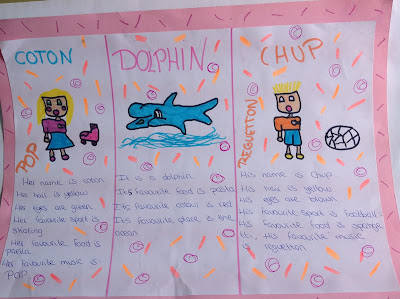 COTON
POP
Her name is coton
Her hair is yellow
Her eyes are green
Her favourite sport is
skating
Her favourite food is
paella
Her favourite music is:
POP
DOLPHIN
It is a dolphin
Its favourite food is paella
Its favourite colour is red
Its favourite place is the
ocean
CHUP
REGUETTON
His name is Chup
His hair is yellow
His eyes are brown
His favourite sport is football
His favourite food is
His favourite music
is reguetton